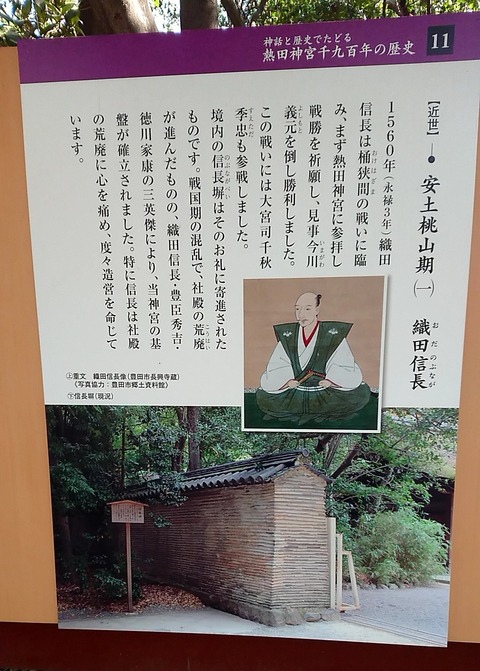 神話と歴史でたどる
熱田神宮千九百年の歴史
11
【近世】―●安土桃山期(一) 織田信長
おだのぶなが
1560年(永禄3年)織田
信長は桶狭間の戦いに臨
おけはざま
み、まず熱田神宮に参拝し
戦勝を祈願し、見事今川
いまがわ
義元を倒し勝利しました。
よしもと
この戦いには大宮司千秋
季忠も参戦しました。
すえただ
境内の信長塀はそのお礼に寄進された
のぶながべい
ものです。戦国期の混乱で、社殿の荒廃
こうはい
が進んだものの、織田信長・豊臣秀吉・
徳川家康の三英傑により、当神宮の基
盤が確立されました。特に信長は社殿
の荒廃に心を痛め、度々造営を命じて
います。
㊤重文 織田信長像(豊田市長興寺蔵)
(写真協力:豊田市郷土資料館)
㊦信長塀(現況)